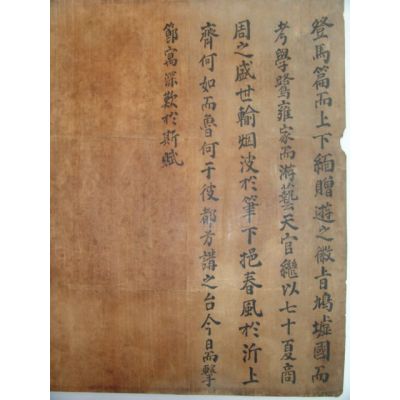 登馬篇而上下緬贈遊之徽旨鳩墟國而
考學鷺雍家而游藝天官繼以七十夏商
周之盛世輸烟波於筆下挹春風於沂上
齊何如而魯何干彼都芳講之台今日而擊
節寓深歎於斯賦